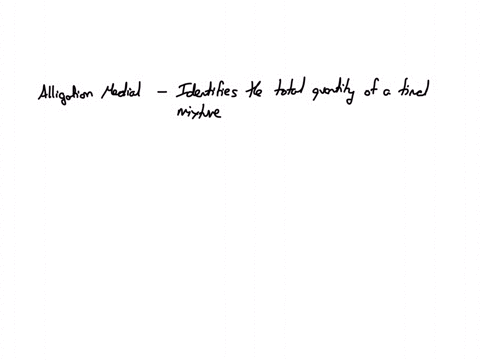 Alligation Medial - Identifies the total quantity of a final
mixture